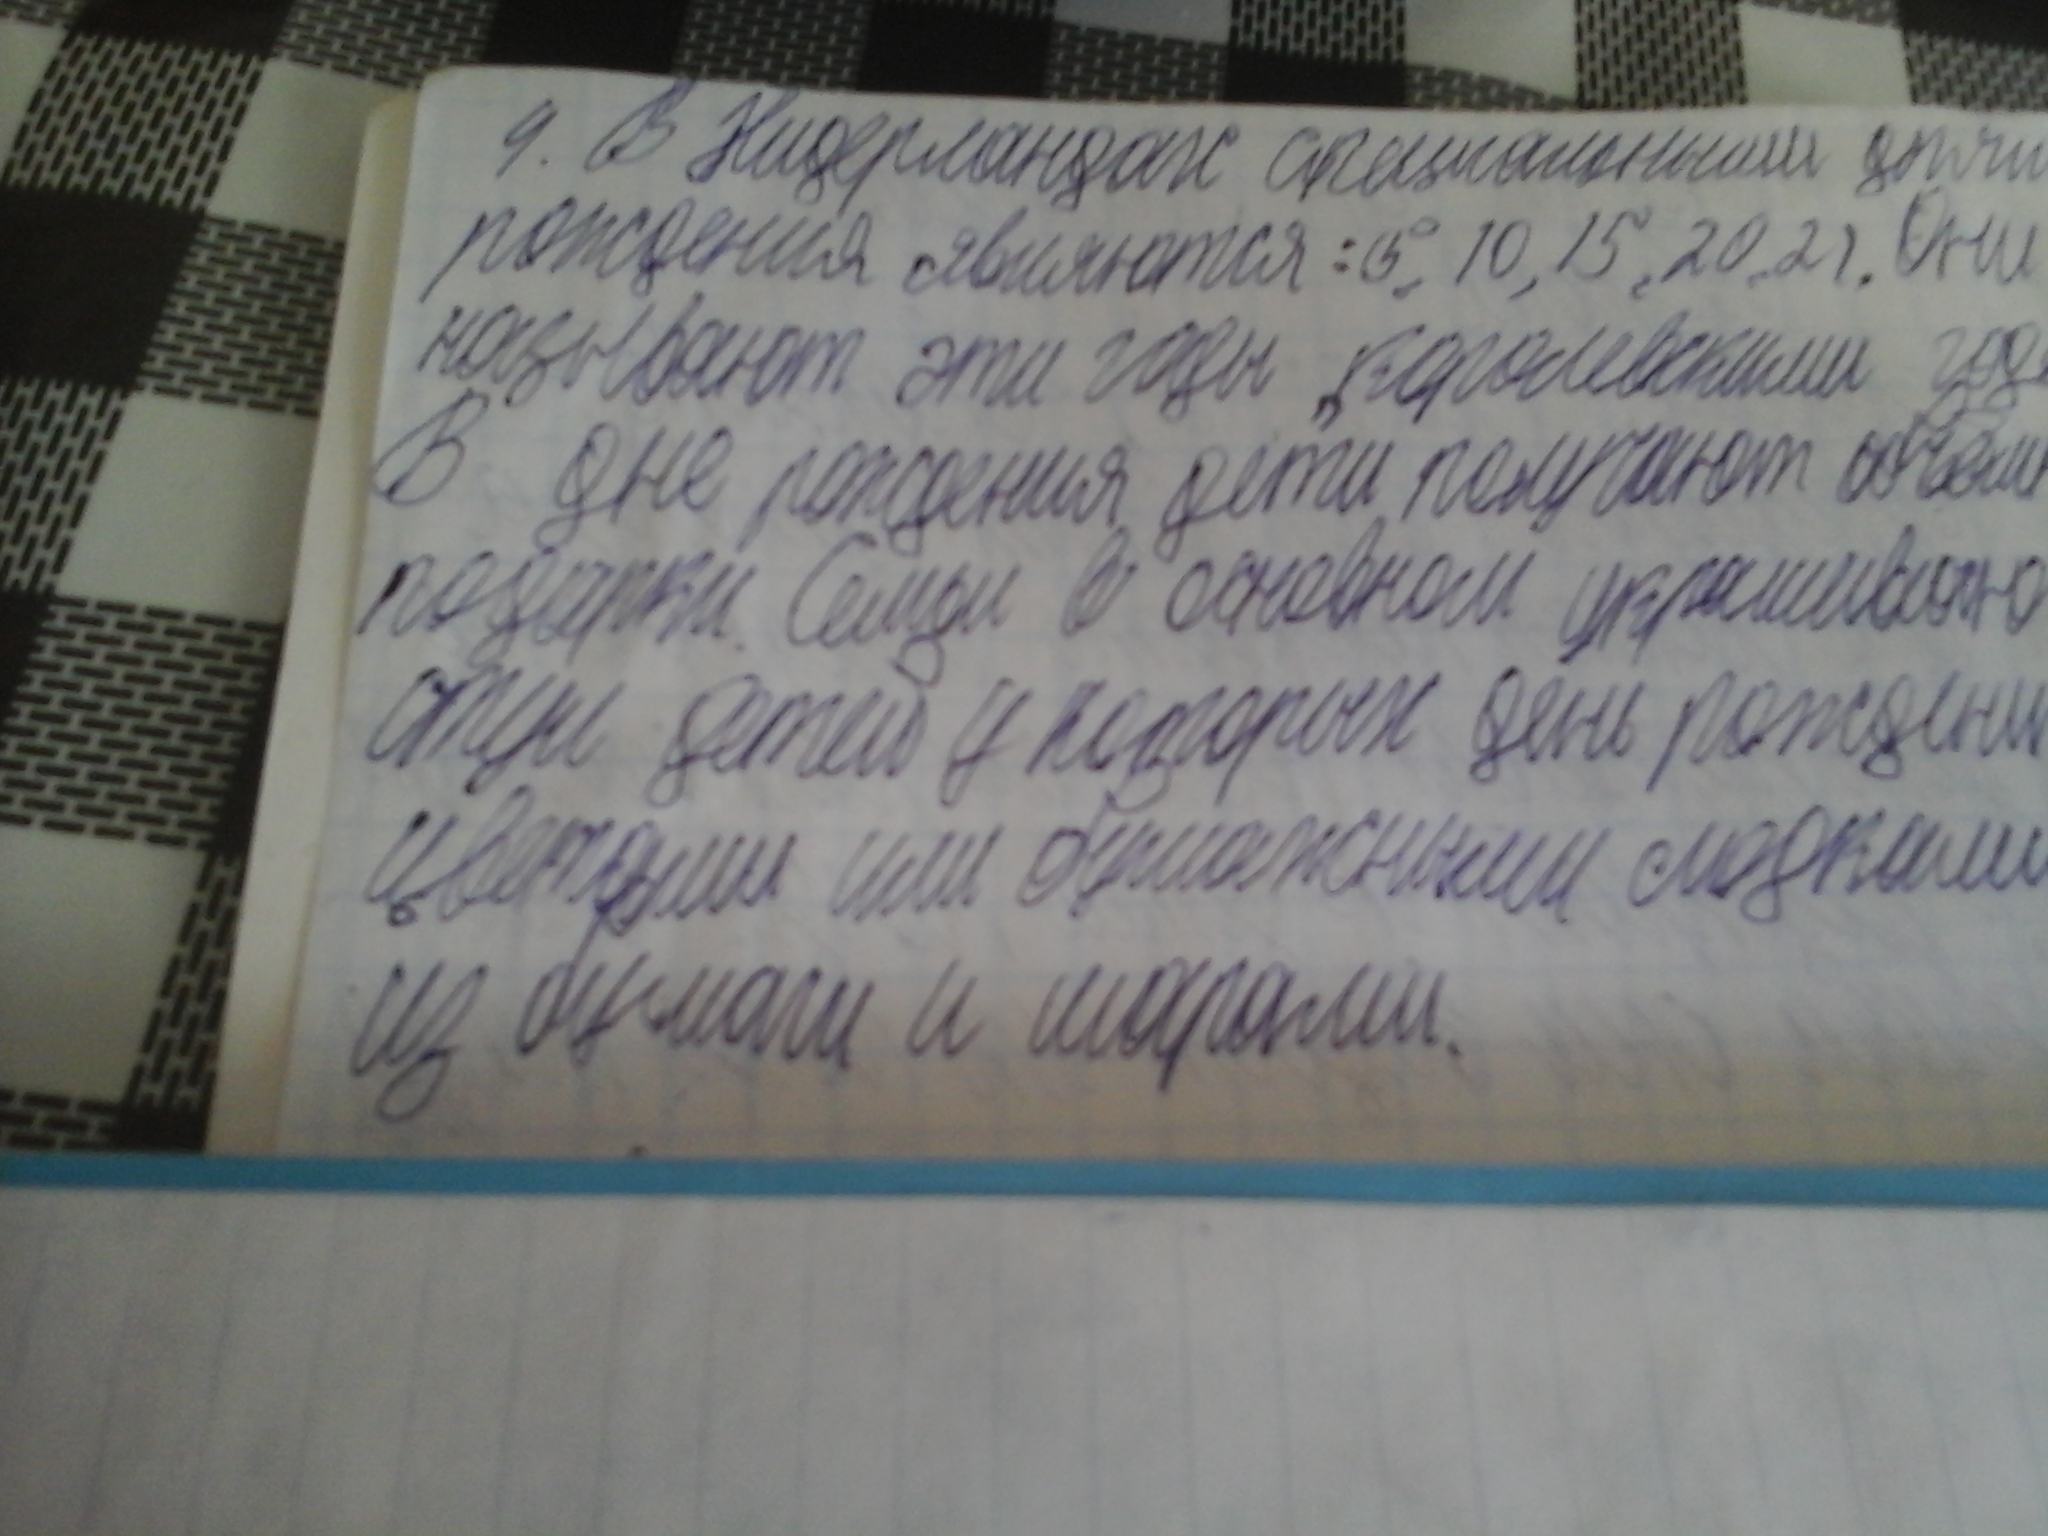 9. В Нидерландах специальными днями
рождения являются: 5, 10, 15, 20, 21. Они
называют эти годы „королевскими
В дне рождения дети получают
подарки. Семьи в основном украшивают
стул детей у которых день рождени
цветами или бумажными сладкими
из бумаги и шарами.